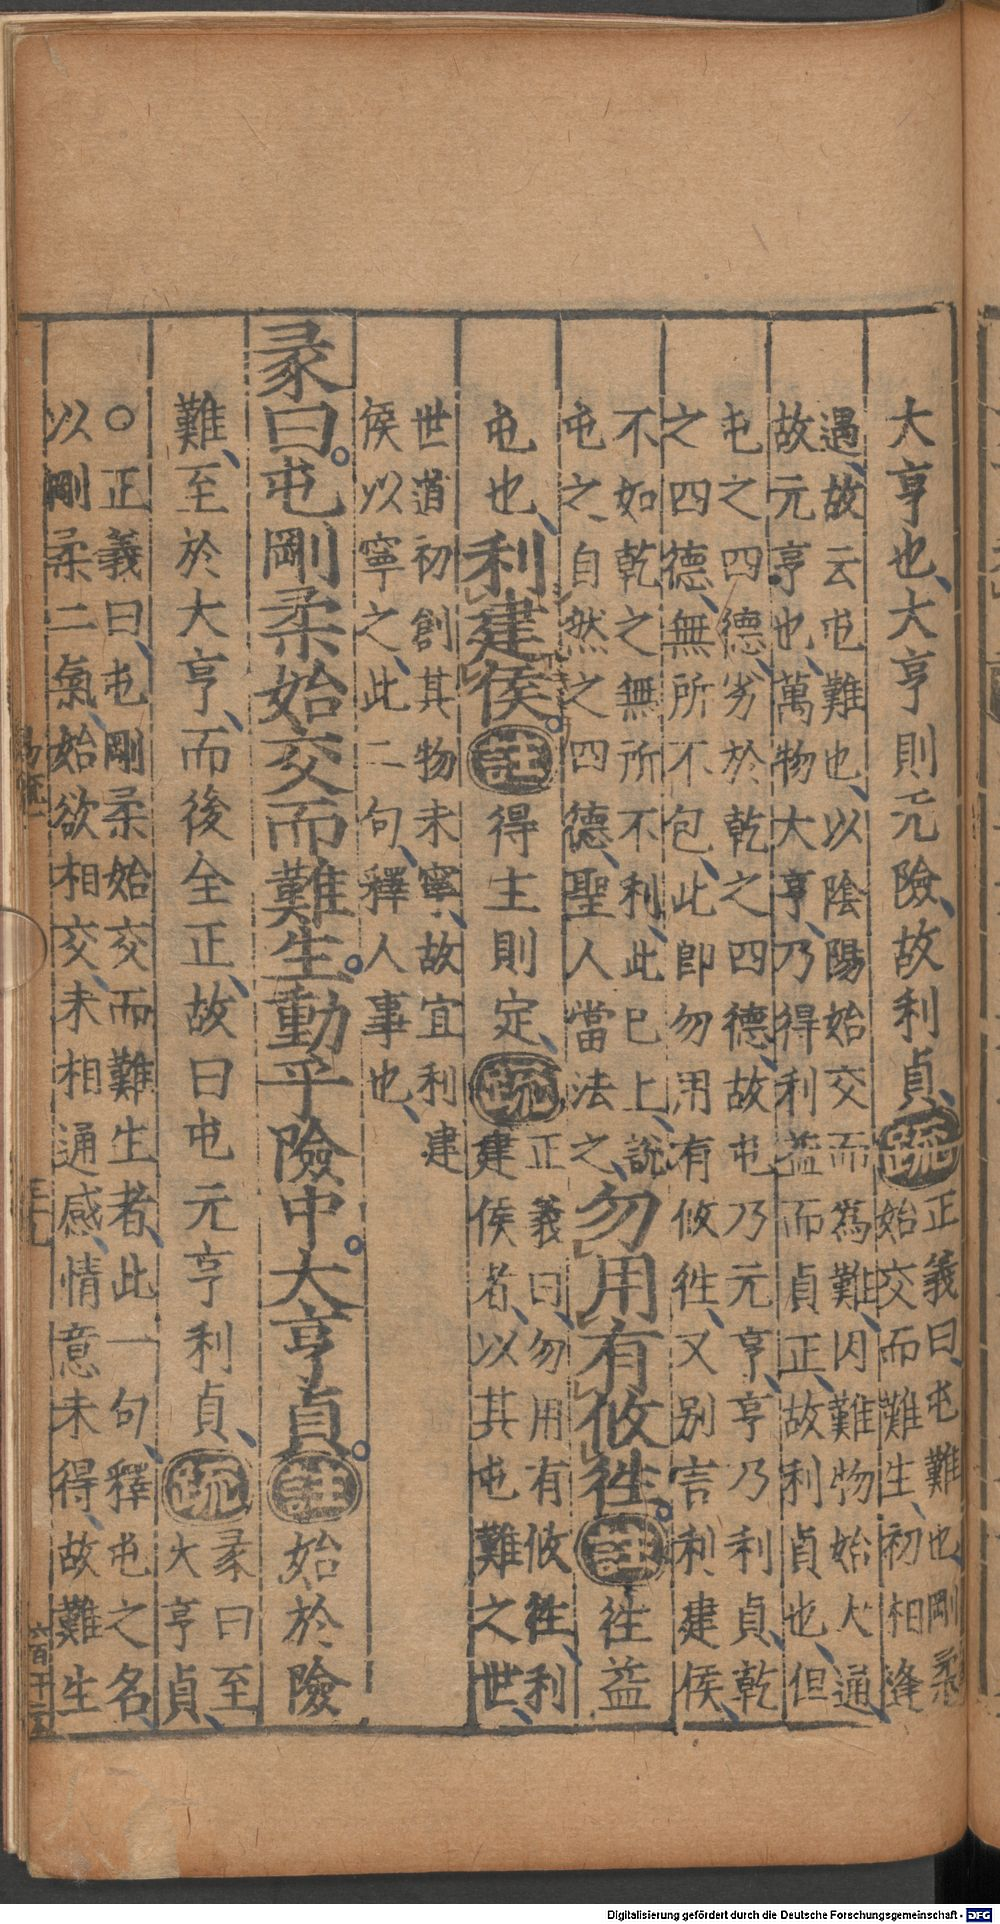 大亨也大亨則无險故利貞疏正義曰屯難也剛柔
始交而難生初相逢
遇故云屯難也以陰陽始交而爲難因難物始大通
故元亨也萬物大亨乃得利益而貞正故利貞也但
屯之四德劣於乾之四德故屯乃元亨亨乃利貞乾
之四德無所不包此即勿用有攸徃又别言利建侯
不如乾之無所不利此已上說
屯之自然之四德聖人當法之勿用有攸徃註徃益
屯也利建侯註得主則定疏正義曰勿用有攸徃利
建侯者以其屯難之世
世道初創其物未寧故宜利建
侯以寧之此二句釋人事也
彖曰屯剛柔始交而難生動乎險中大亨貞註始於險
難至於大亨而後全正故曰屯元亨利貞疏彖曰至
大亨貞
○正義曰屯剛柔始交而難生者此一句釋屯之名
以剛柔二氣始欲相交未相通感情意未得故難生
Digitalisierung gefördert durch die Deutsche Forschungsgemeinschaft - DFG